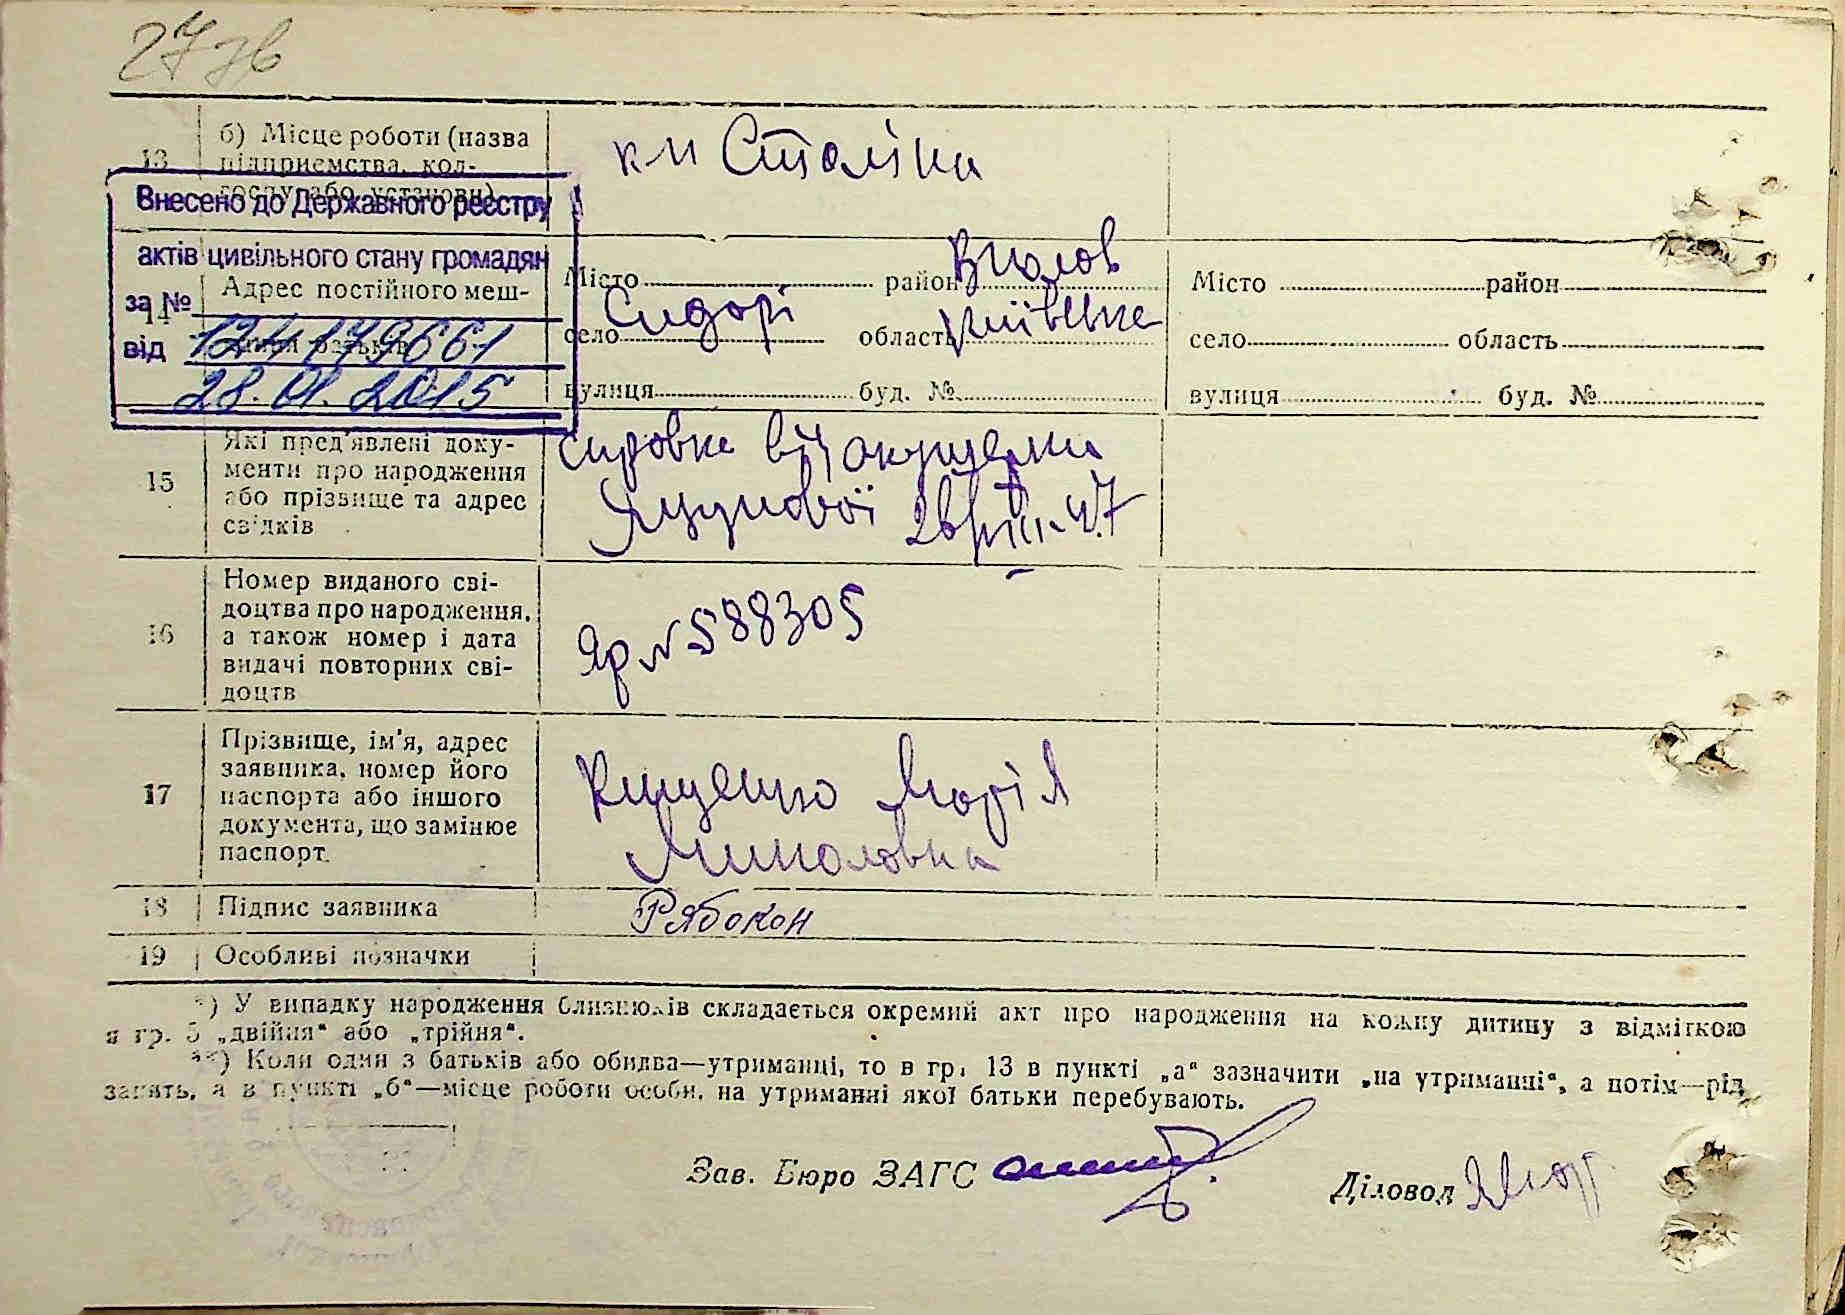 27 зв
13
б) Місце роботи (назва
підприємства, кол-
госпу або установи)
к-п Сталіна
Внесено до Державного реєстру
актів цивільного стану громадян
за №
від 124179661
28.01.2015
14
Адрес постійного меш-
Місто район
село Сидорі область Київська
вулиця буд. №
Місто район
село область
вулиця буд. №
15
Які пред'явлені доку-
менти про народження
або прізвище та адрес
свідків
Справка від акушерки
16
Номер виданого сві-
доцтва про народження,
а також номер і дата
видачі повторних сві-
доцтв
Яр № 588305
17
Прізвище, ім'я, адрес
заявника, номер його
паспорта або іншого
документа, що замінює
паспорт.
Марія
Миколовна
18 Підпис заявника
Рябокон
19 Особливі позначки
*) У випадку народження близнюків складається окремий акт про народження на кожну дитину з відміткою
в гр. 5 „двійня“ або „трійня“.
**) Коли один з батьків або обидва—утриманці, то в гр. 13 в пункті „а“ зазначити „на утриманні“, а потім—рід
занять, а в пункті „б“—місце роботи особи, на утриманні якої батьки перебувають.
Зав. Бюро ЗАГС
Діловод